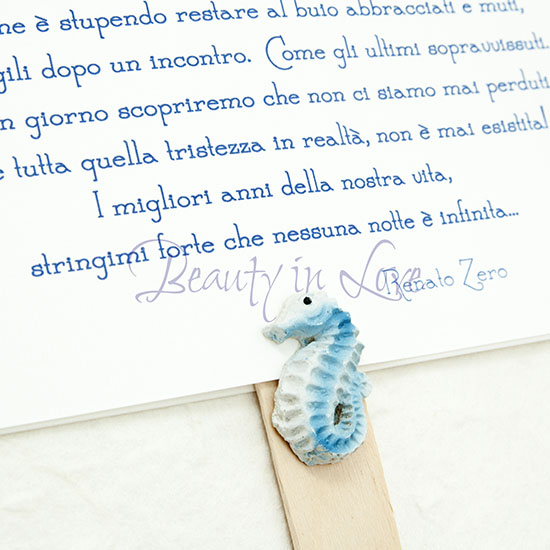 ne è stupendo restare al buio abbracciati e muti,
gili dopo un incontro. Come gli ultimi sopravvissuti.
n giorno scopriremo che non ci siamo mai perduti
e tutta quella tristezza in realtà, non è mai esistita!
I migliori anni della nostra vita,
stringimi forte che nessuna notte è infinita...
Beauty in Love
Renato Zero